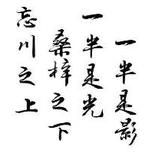 一半是影
一半是光
桑梓之下
忘川之上